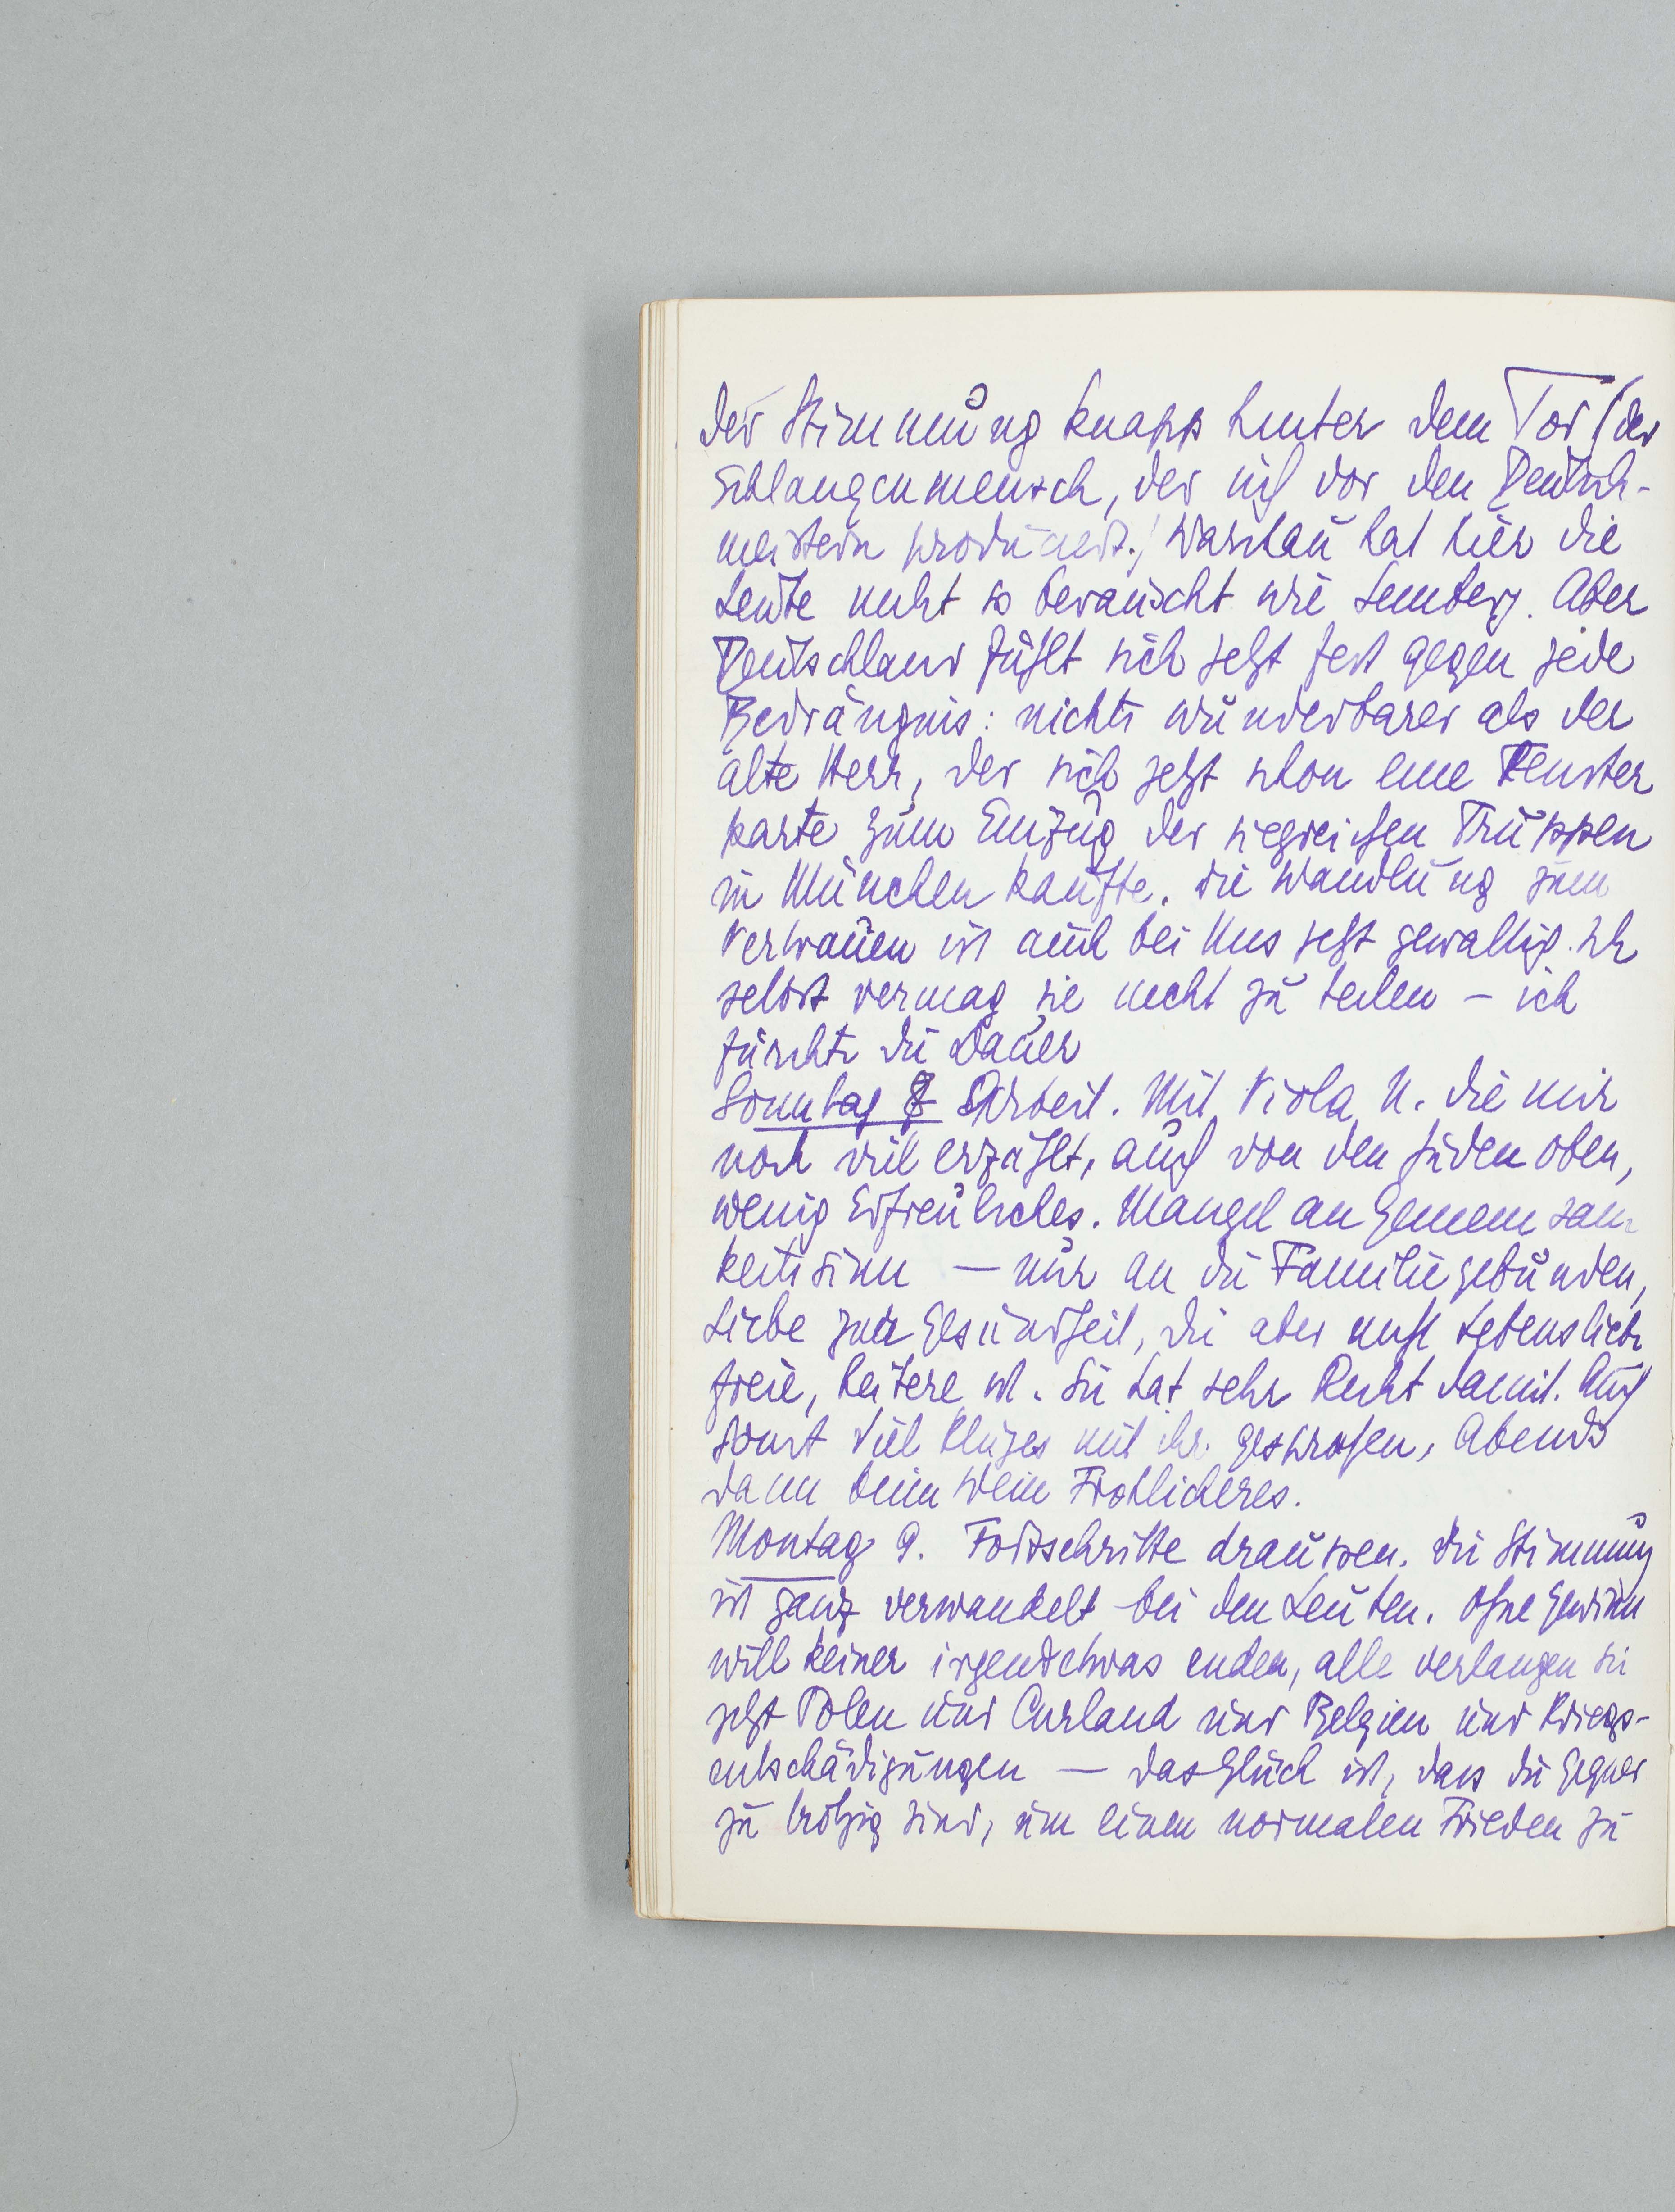 der Stimmung knapp hinter dem Tor (der
Schlangenmensch, der sich vor den Deutsch-
meistern produciert.) Warschau hat hier die
Leute nicht so berauscht wie Lemberg. Aber
Deutschland fühlt sich jetzt fest gegen jede
Bedrängnis: nichts wunderbarer als der
alte Herr, der sich jetzt schon eine Fenster
karte zum Einzug der siegreichen Truppen
in München kaufte. Die Wandlung zum
Vertrauen ist auch bei Uns jetzt gewaltig. Ich
selbst vermag sie nicht zu teilen – ich
fürchte die Dauer
Sonntag 8 Arbeit. Mit Viola U. die mir
noch viel erzählt, auch von den Juden oben,
wenig Erfreuliches. Mangel an Gemeinsam
keitssinn – nur an die Familie gebunden,
Liebe zur Gesundheit, die aber nicht Lebensliebe
freie, heitere ist. Sie hat sehr Recht damit. Auch
sonst viel Kluges mit ihr gesprochen, Abends
dann beim Wein Fröhlicheres.
Montag 9. Fortschritte draussen. Die Stimmung
ist ganz verwandelt bei den Leuten. Ohne Gewinn
will keiner irgendetwas enden, alle verlangen sie
jetzt Polen und Curland und Belgien und Kriegs-
entschädigungen – das Glück ist, dass die Gegner
zu trotzig sind, um einen normalen Frieden zu